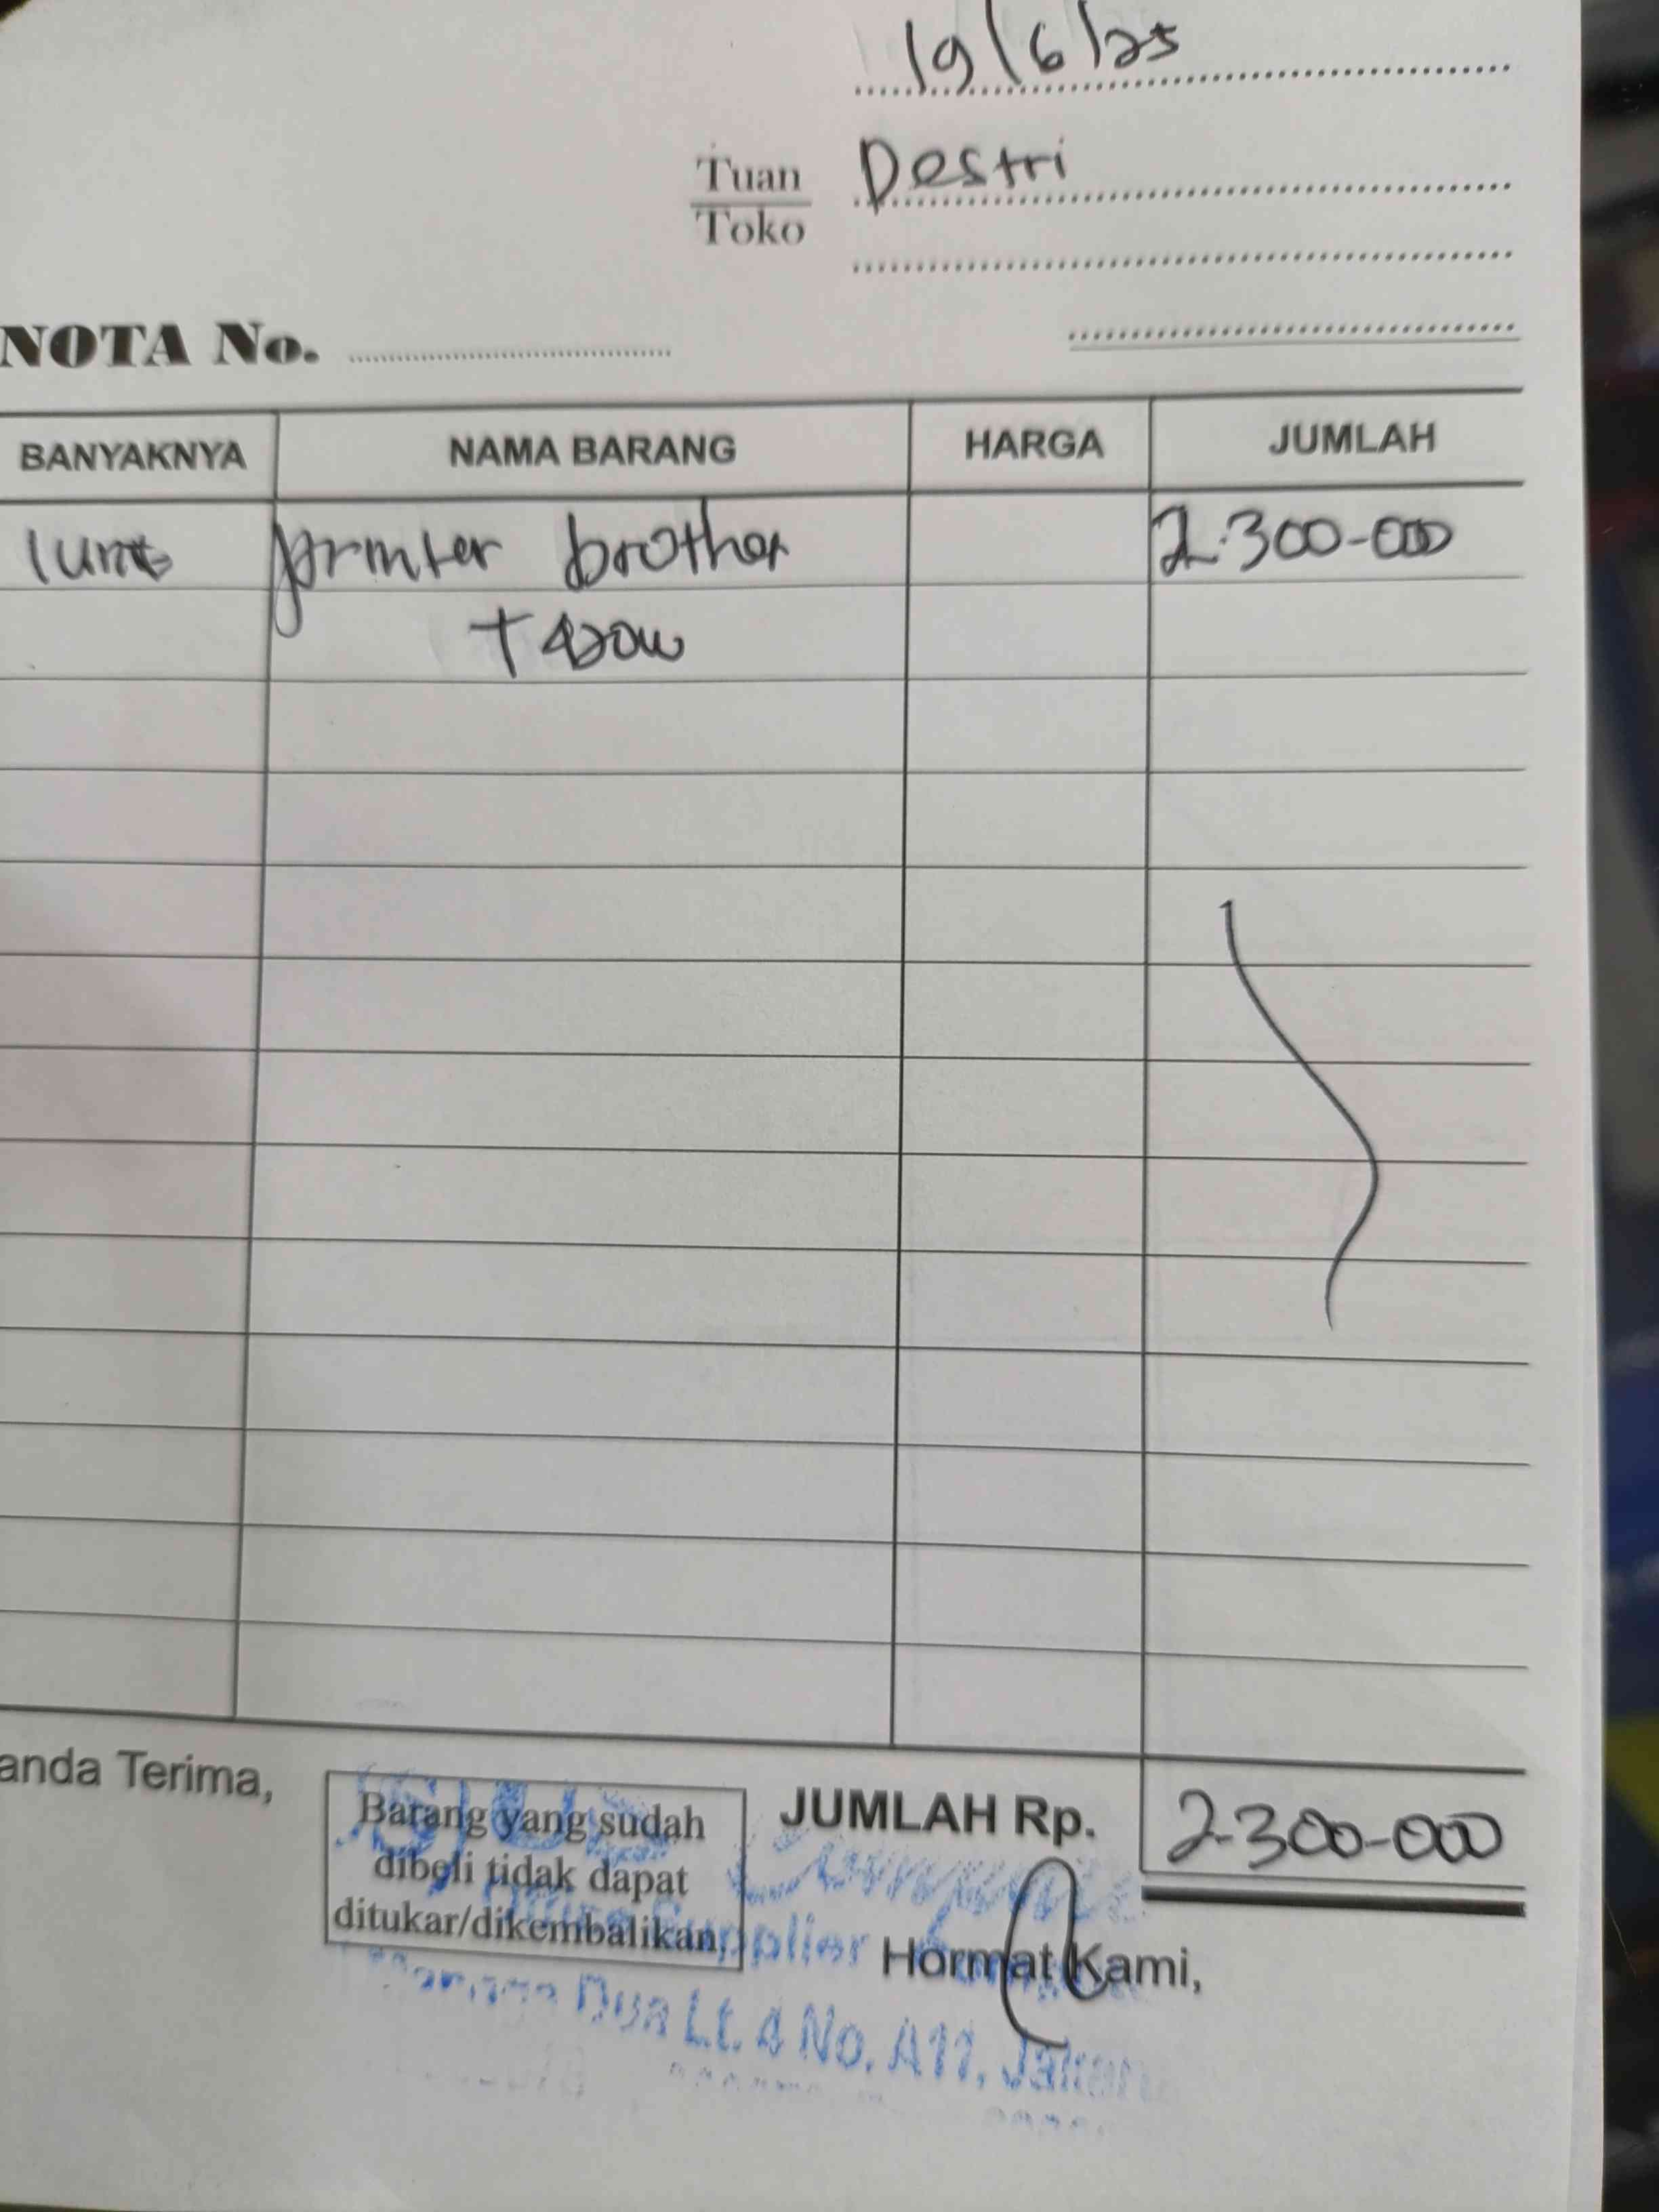 19/6/25
Tuan Destri
Toko
NOTA No.
BANYAKNYA NAMA BARANG HARGA JUMLAH
1 unit printer brother 2.300-000
+ 420w
anda Terima,
Barang yang sudah
dibeli tidak dapat
ditukar/dikembalikan,
JUMLAH Rp. 2.300-000
Supplier
Hormat Kami,
Dua Lt. 4 No. A11,